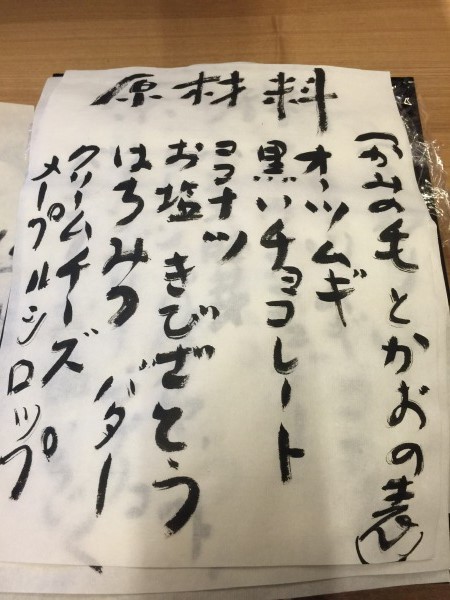 原材料
（かみの毛とかおの表）
オーツムギ
黒いチョコレート
ココナツ
お塩 きびざとう
はちみつ バター
クリームチーズ
メープルシロップ